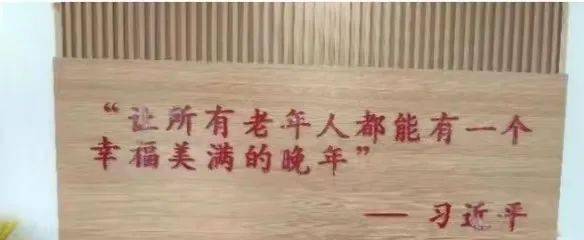 “让所有老年人都能有一个
幸福美满的晚年”
——习近平